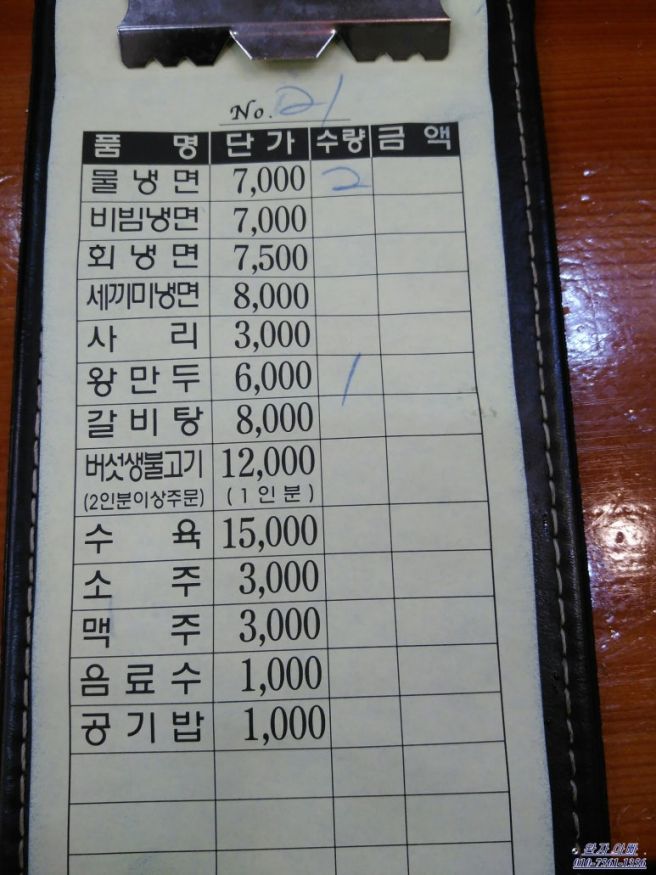 No. 21
품 명 단 가 수량 금 액
물 냉 면 7,000 2
비빔냉면 7,000
회 냉 면 7,500
세끼미냉면 8,000
사 리 3,000
왕 만 두 6,000 1
갈 비 탕 8,000
버섯생불고기 12,000
(2인분이상주문) (1 인 분)
수 육 15,000
소 주 3,000
맥 주 3,000
음 료 수 1,000
공 기 밥 1,000